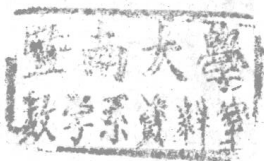 暨南大學
數学系資料室